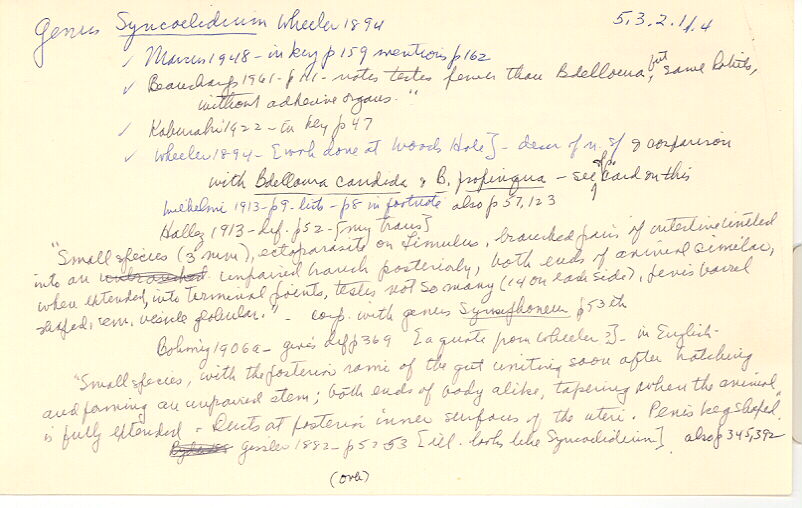 Genus Syncoelidium Wheeler 1894 5.3.2.11.4
✓ Marcus 1948 - in key p 159 mentions p 162
✓ Beauchamp 1961 - p 111 - notes testes fewer than Bdelloura, but same habits,
without adhesive organs."
✓ Kaburaki 1922 - in key p 47
✓ Wheeler 1894 - [work done at Woods Hole] - descr of n. sp & comparison
with Bdelloura candida & B. propinqua - see spp card on this
Wilhelmi 1913 - p 9 - lists - p 8 in footnote also p 57, 123
Hallez 1913 - dif. p 52 - [my trans]
"Small species (3 mm), ectoparasite on Limulus, branched pair of intestine united
into an unpaired branch posteriorly, both ends of animal similar,
when extended, into terminal points, testes not so many (14 on each side), penis barrel
shaped, sem. vesicle globular." - comp. with genus p 53 th
Böhmig 1906a - gives dif p 369 [a quote from Wheeler] - in English -
"Small species, with the posterior rami of the gut uniting soon after hatching
and forming an unpaired stem; both ends of body alike, tapering when the animal
is fully extended - Ducts at posterior inner surfaces of the uteri. Penis keg shaped."
Gissler 1882 - p 52-53 [ill. looks like Syncoelidium] also p 345, 392
(over)